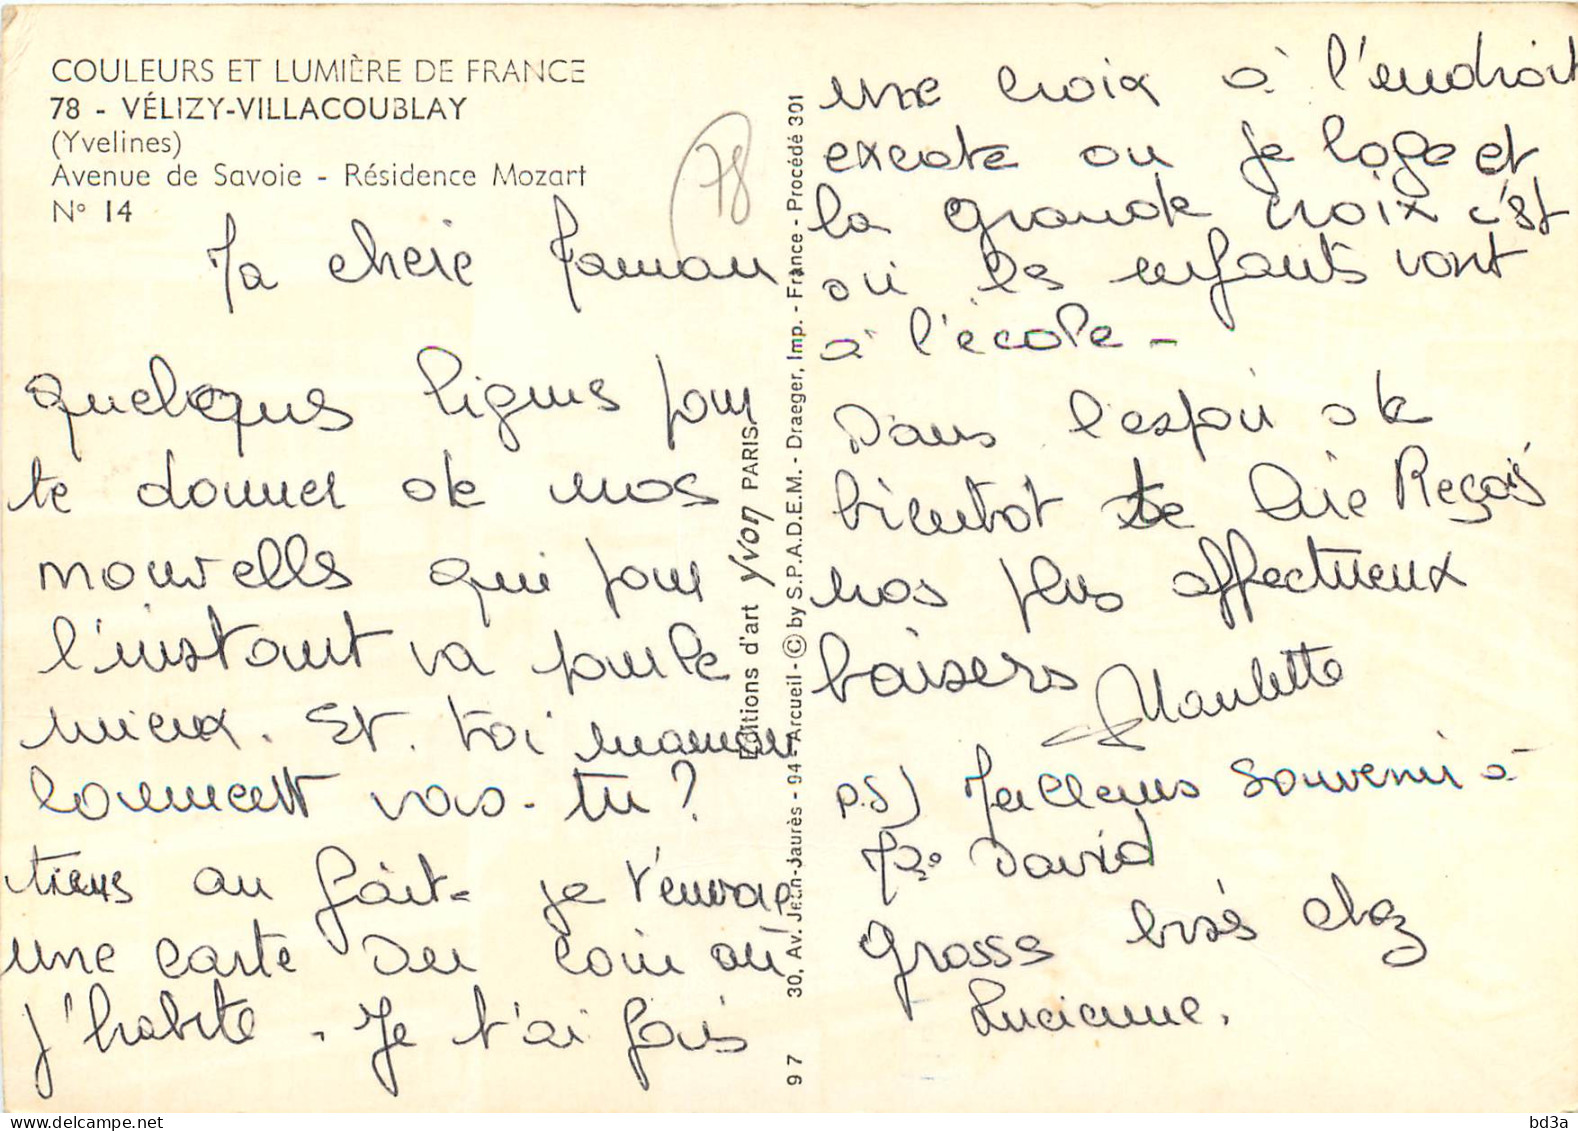 COULEURS ET LUMIÈRE DE FRANCE
78 - VÉLIZY-VILLACOUBLAY
(Yvelines)
Avenue de Savoie - Résidence Mozart
N° 14
78
Ma cherie Maman
quelques lignes pour
te donner de nos
nouvelles qui pour
l'instant va pour le
mieux. Et. toi maman
comment vas-tu?
tiens au fait je t'envoie
une carte du coin où
j'habite. Je t'ai fais
Editions d'art Yvon PARIS
30, Av. Jean-Jaurès - 94 - Arcueil - © by S.P.A.D.E.M. - Draeger, Imp. - France - Procédé 301
97
une croix à l'endroit
exacte ou je loge et
la grande croix c'est
où les enfants vont
à l'école -
Dans l'espoir de
bientot te lire Reçois
nos plus affectueux
baisers
Paulette
P.S) Meilleurs souvenir à
David
Grosse bisés chez
Lucienne.
delcampe.net
bd3a